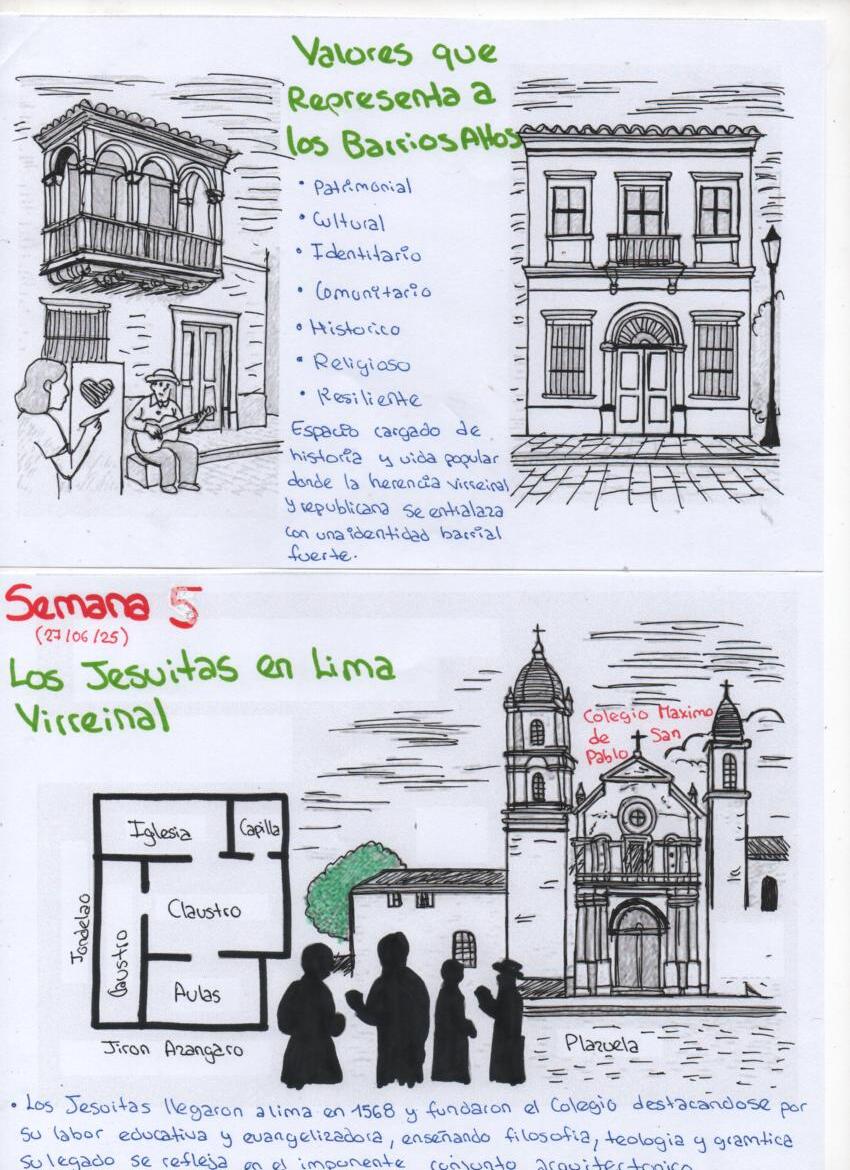 Valores que
Representa a
los Barrios Altos
• Patrimonial
• Cultural
• Identitario
• Comunitario
• Historico
• Religioso
• Resiliente
Espacio cargado de
historia y vida popular
donde la herencia virreinal
y republicana se entralaza
con una identidad barrial
fuerte.
Semana 5
(27/06/25)
Los Jesuitas en Lima
Virreinal
Colegio Maximo
de San
Pablo
Iglesia
Capilla
Claustro
Caustro
Aulas
Jiron Azangaro
Plazuela
• Los Jesuitas llegaron a lima en 1568 y fundaron el Colegio destacandose por
su labor educativa y evangelizadora, enseñando filosofia, teologia y gramtica
su legado se refleja en el imponente conjunto arquitectonico